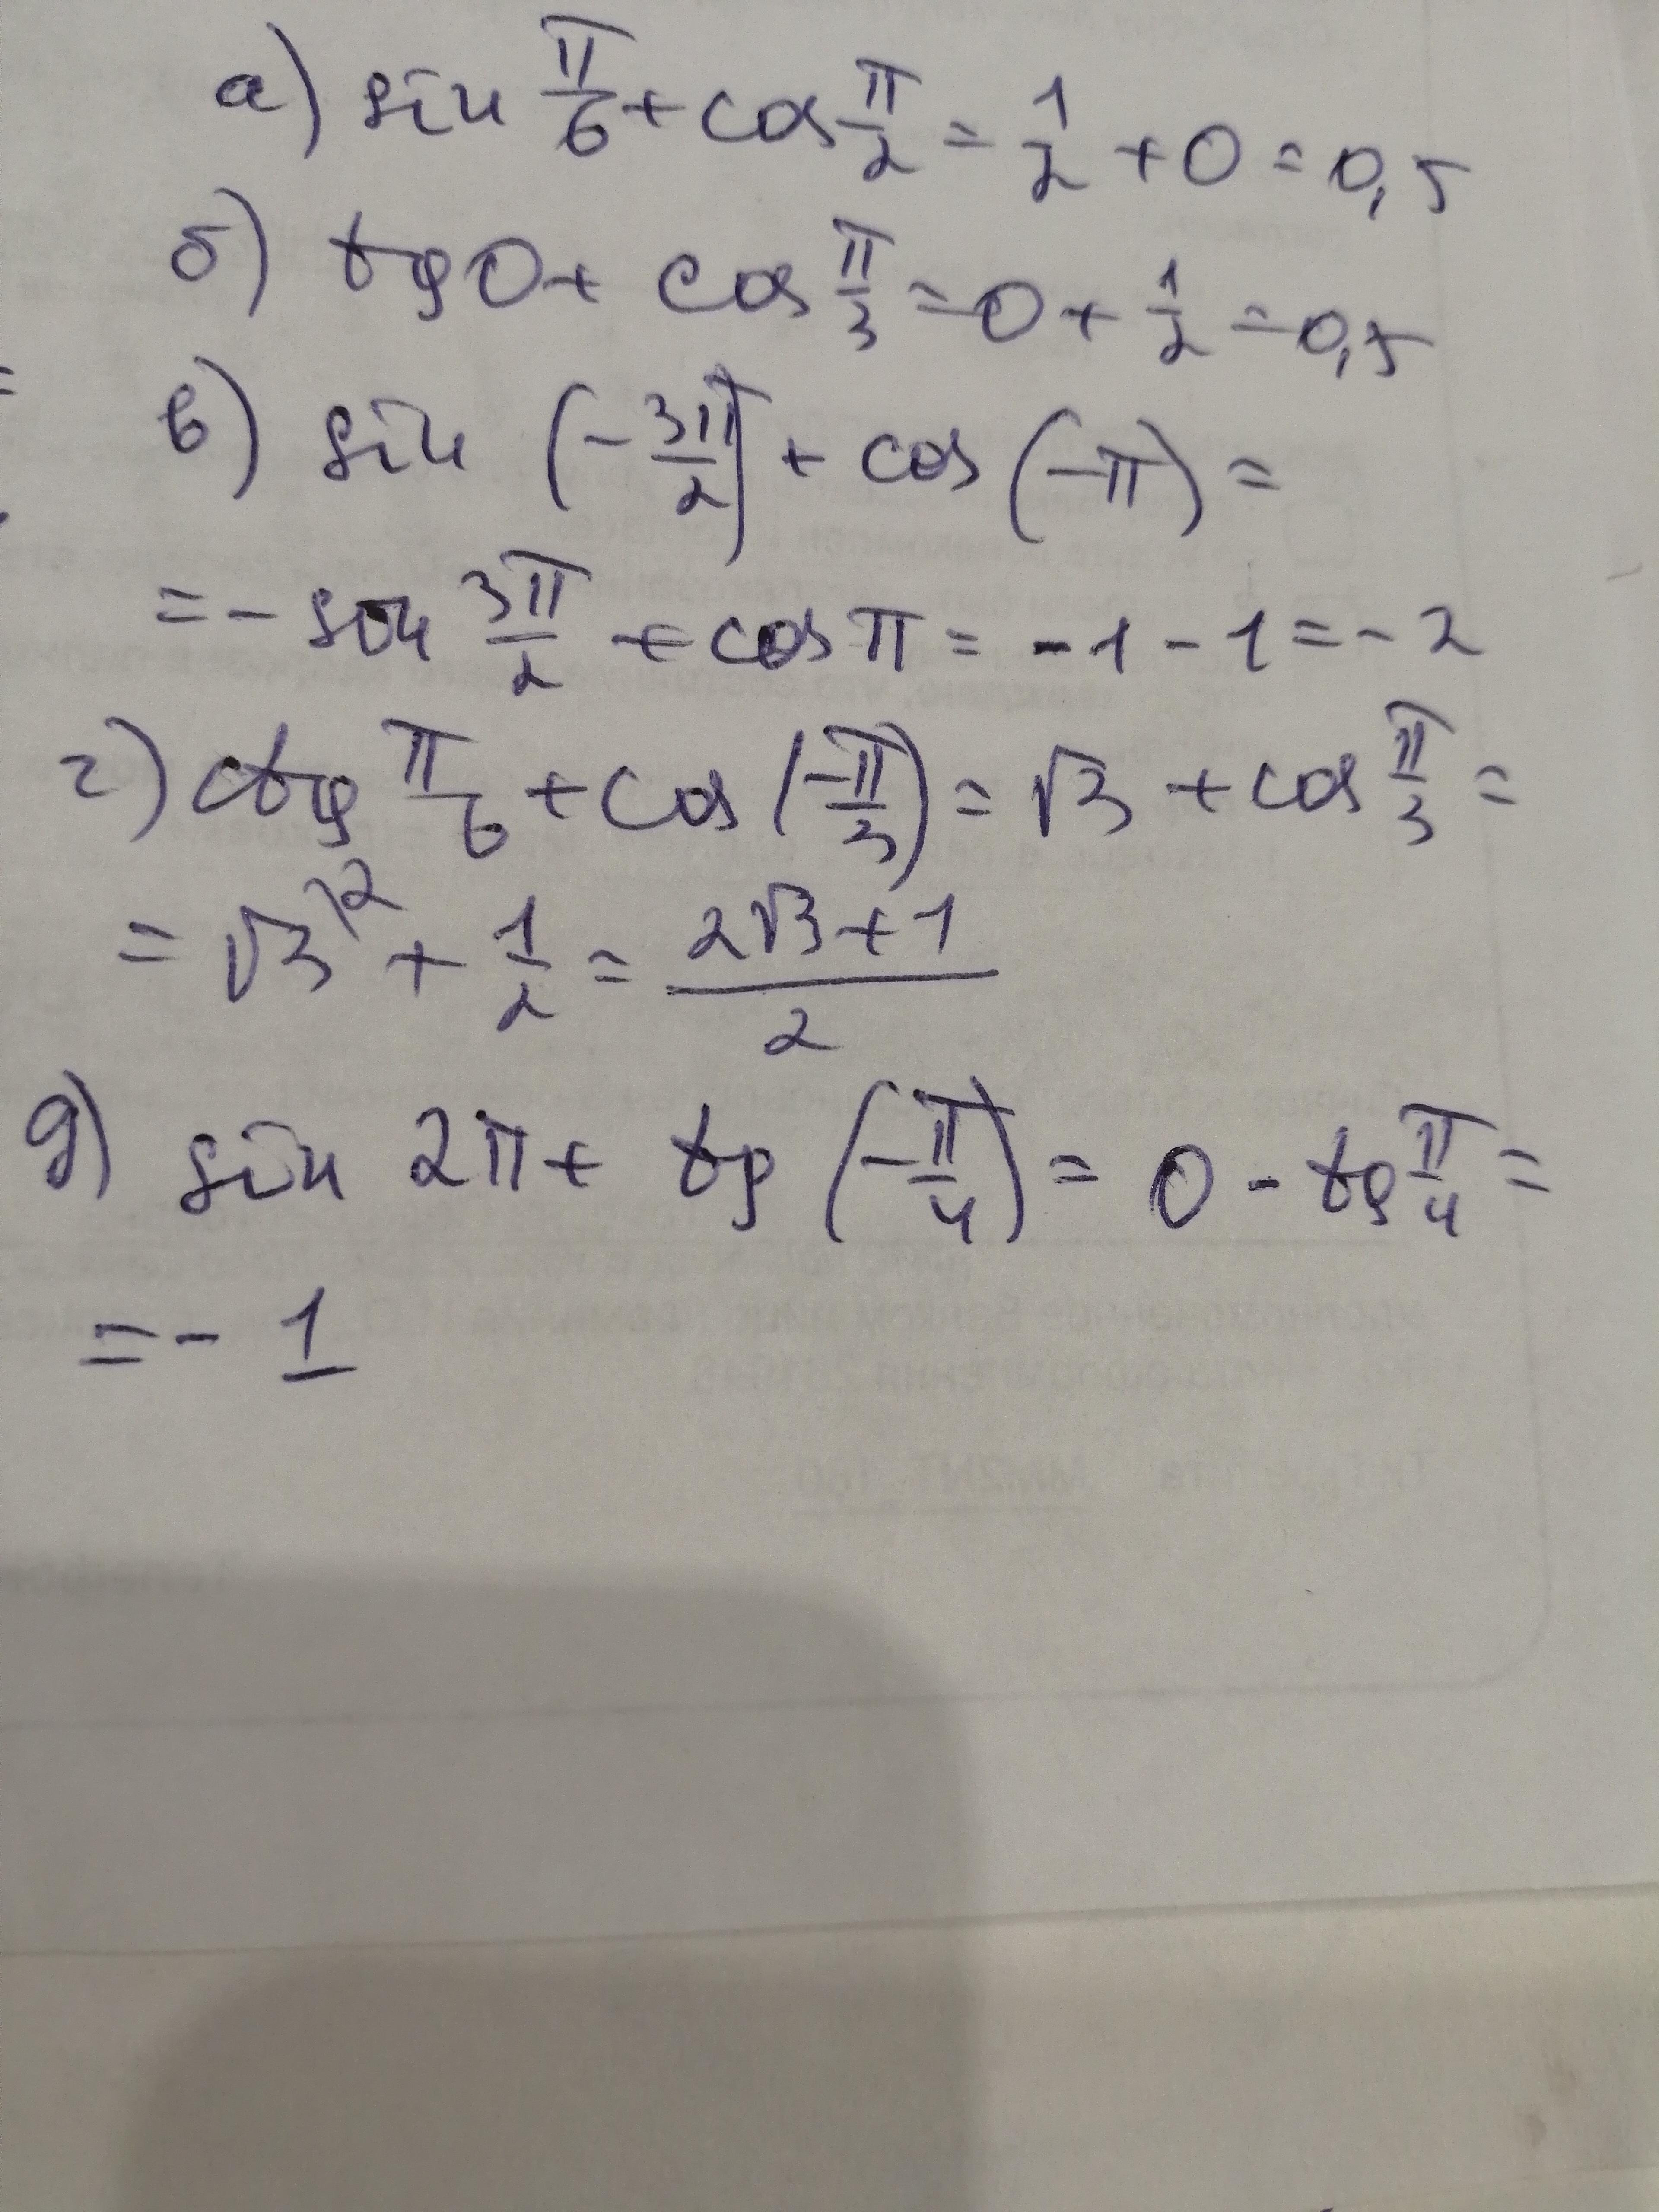 а) sin π/6 + cos π/2 = 1/2 + 0 = 0,5
б) tg 0 + cos π/3 = 0 + 1/2 = 0,5
в) sin (-3π/2) + cos (-π) =
= - sin 3π/2 + cos π = -1 - 1 = -2
г) ctg π/6 + cos (-π/3) = √3 + cos π/3 =
= √3^{\2} + 1/2 = (2√3+1)/2
д) sin 2π + tg (-π/4) = 0 - tg π/4 =
= - 1